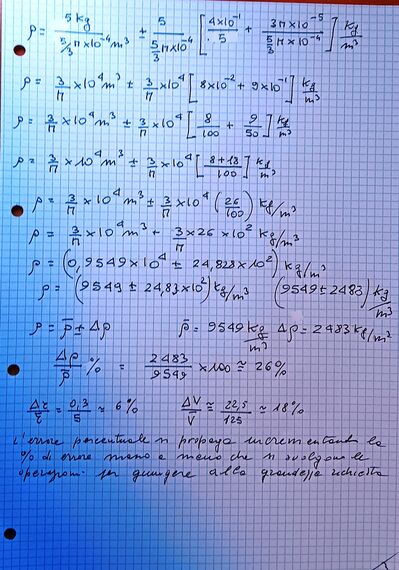 ρ = 5 kg / (5/3 π×10⁻⁴ m³) ± 5 / (5/3 π×10⁻⁴) [ 4×10⁻¹ / 5 + 3π×10⁻⁵ / (5/3 π×10⁻⁴) ] kg/m³
ρ = 3/π ×10⁴ m³ ± 3/π ×10⁴ [ 8×10⁻² + 9×10⁻¹ ] kg/m³
ρ = 3/π ×10⁴ m³ ± 3/π ×10⁴ [ 8/100 + 9/50 ] kg/m³
ρ = 3/π × 10⁴ m³ ± 3/π ×10⁴ [ (8+18)/100 ] kg/m³
ρ = 3/π ×10⁴ m³ ± 3/π ×10⁴ (26/100) kg/m³
ρ = 3/π ×10⁴ m³ - 3/π ×26 ×10² kg/m³
ρ = (0,9549×10⁴ ± 24,828×10²) kg/m³
ρ = (9549 ± 24,83×10²) kg/m³ (9549 ± 2483) kg/m³
ρ = ρ̄ ± Δρ ρ̄ = 9549 kg/m³ Δρ = 2483 kg/m²
Δρ/ρ̄ % = 2483/9549 ×100 ≅ 26%
Δr/r̄ = 0,3/5 ≃ 6% ΔV/V̄ ≅ 22,5/125 ≃ 18%
L'errore percentuale si propaga incrementando la
% di errore mano a mano che si svolgono le
operazioni per giungere alla grandezza richiesta